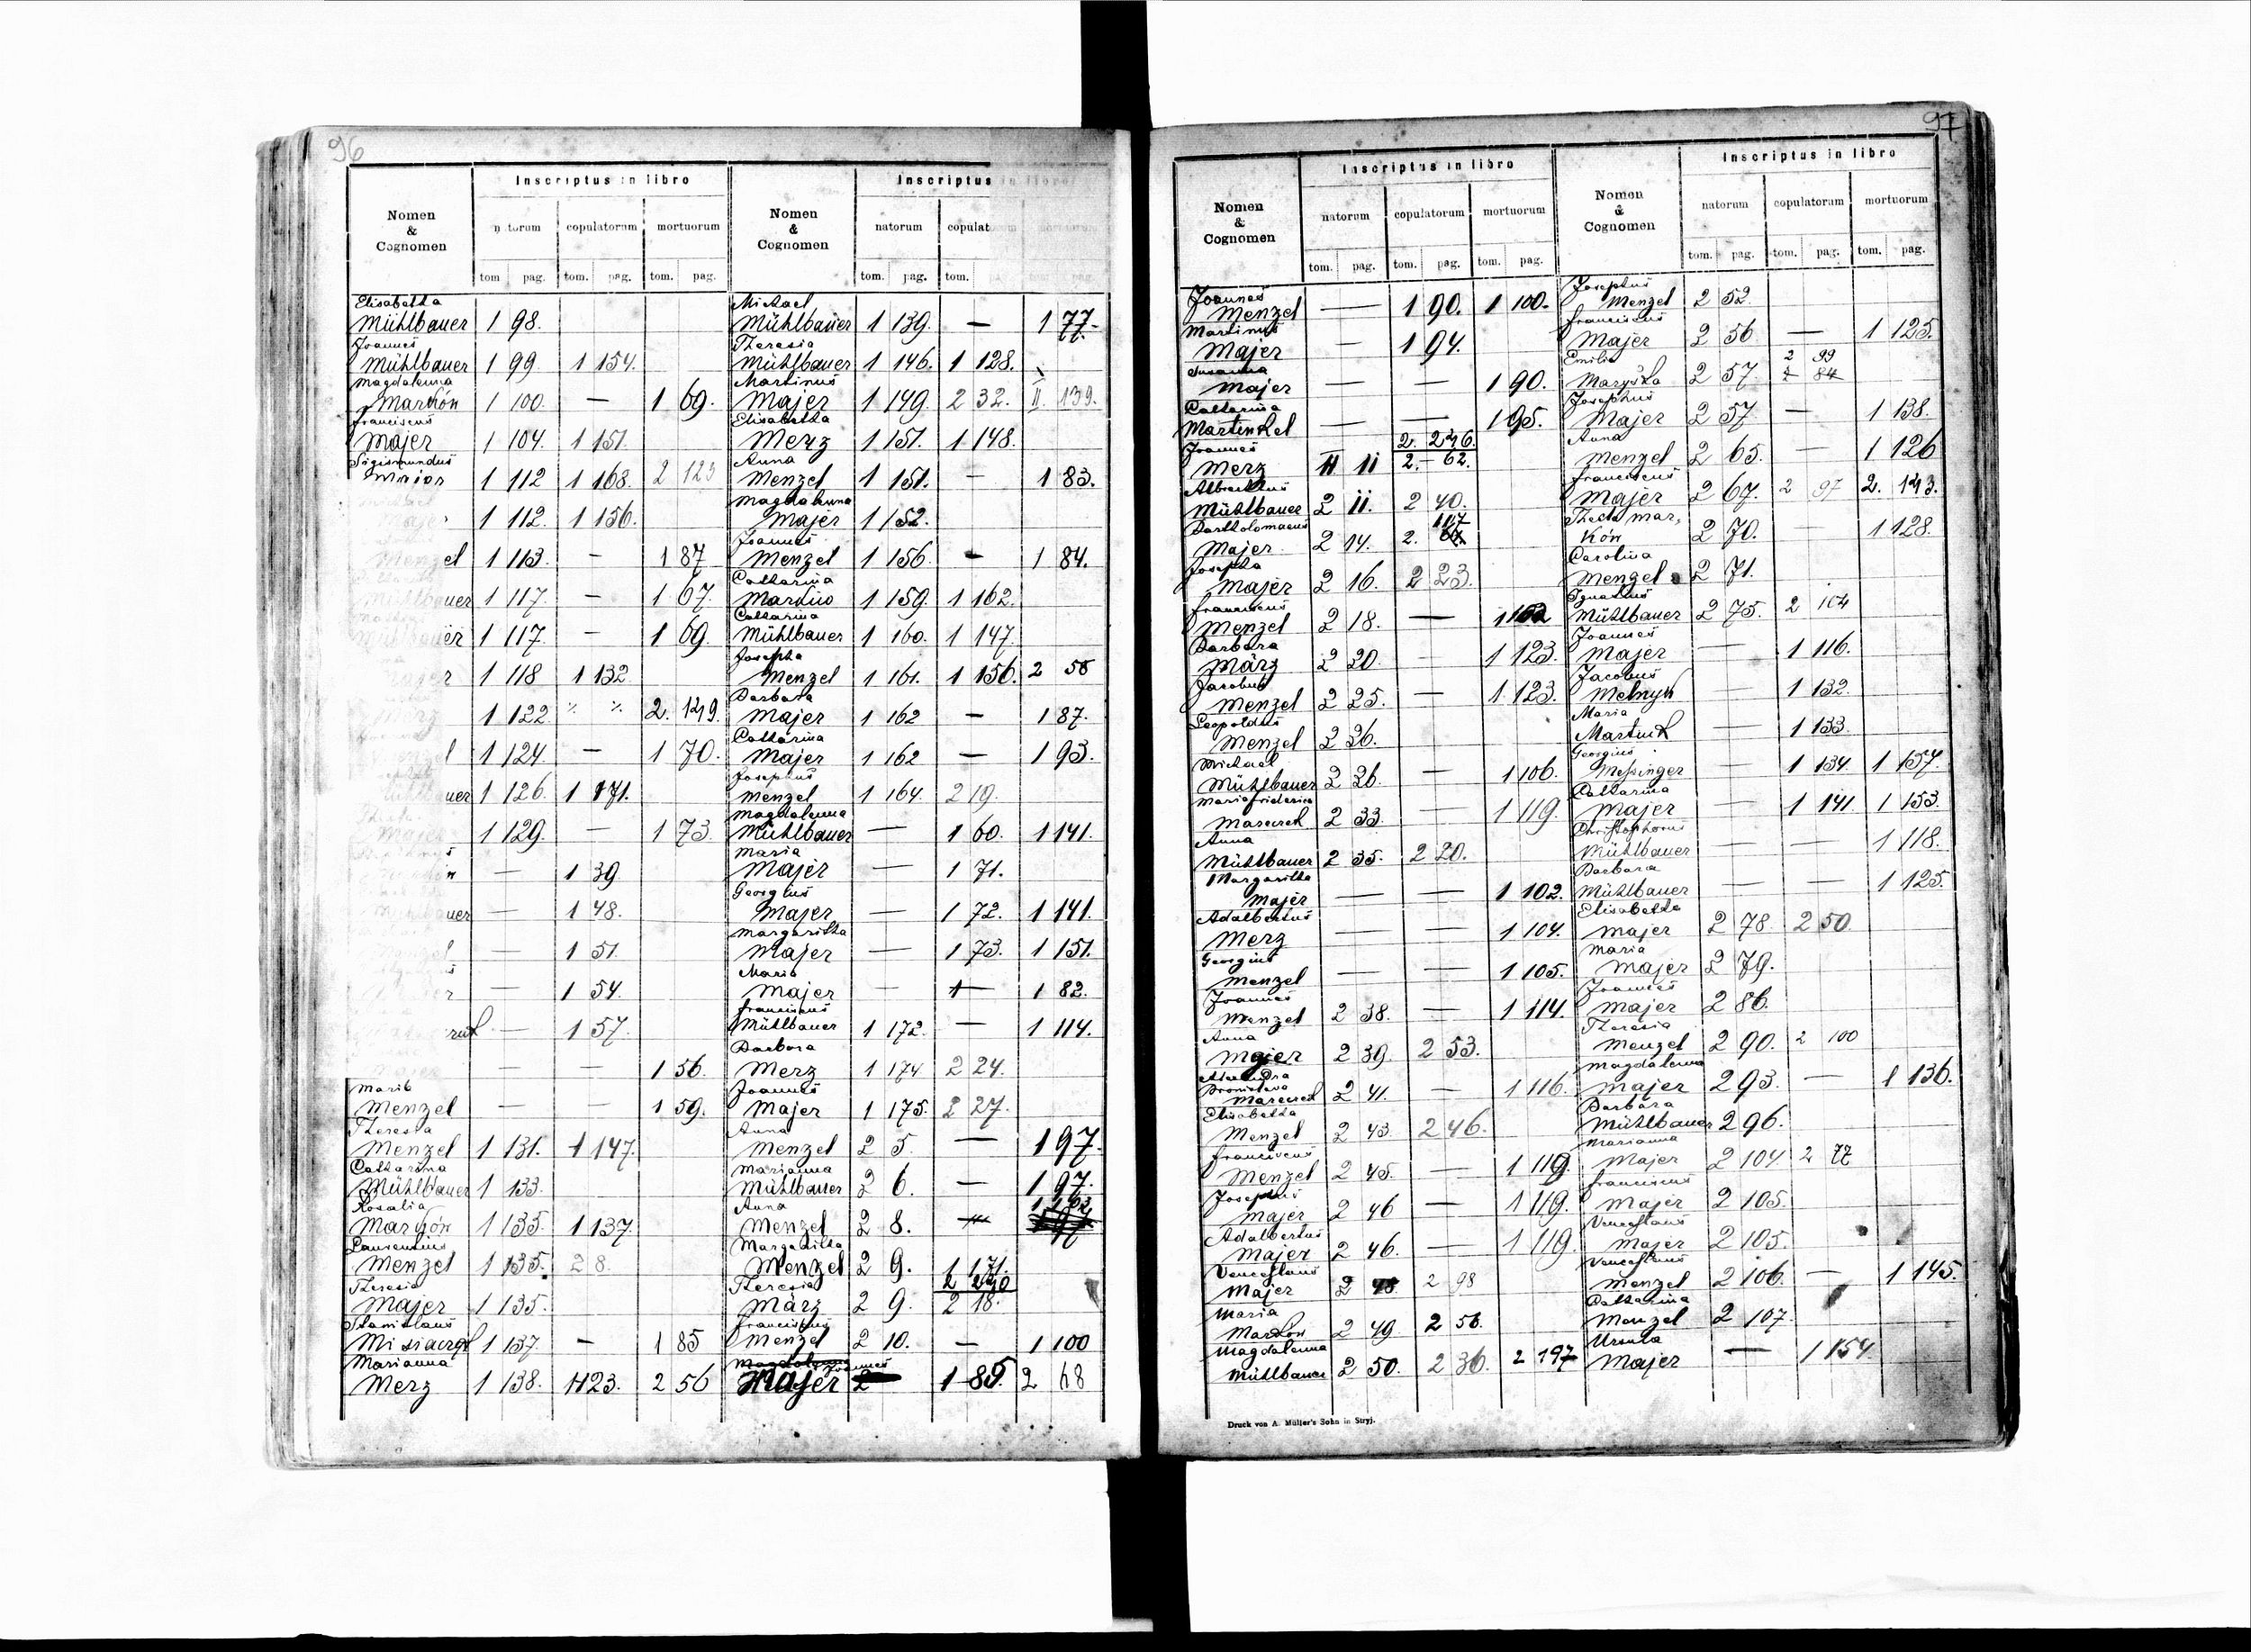 96
Inscriptus in libro
Inscriptus in libro
Nomen & Cognomen
natorum copulatorum mortuorum
Nomen & Cognomen
natorum copulat
tom pag. tom. pag. tom. pag.
tom. pag. tom.
Elisabetha
Mühlbauer 1 98.
Joannes
Mühlbauer 1 99 1 154.
Magdalenna
Markón 1 100. — 1 69.
Franciscus
Majer 1 104. 1 151.
Sigismundus
1 112 1 168. 2 123
1 112. 1 156.
Menzel 1 113. — 1 87
Mühlbauer 1 117. — 1 67.
Mühlbauer 1 117. — 1 69.
1 118 1 132
1 122. 2. 149.
1 124. — 1 70.
1 126. 1 171.
Majer 1 129. — 1 73.
— 1 39
Mühlbauer — 1 48.
— 1 51.
— 1 54.
— 1 57.
Majer — — 1 56.
Maria
Menzel — — 1 59.
Theresia
Menzel 1 131. 1 147.
Catharina
Mühlbauer 1 133.
Rosalia
Markón 1 135. 1 137.
Laurentius
Menzel 1 135. 2 8.
Theresia
Majer 1 135.
Stanislaus
1 137. — 1 85
Marianna
Merz 1 138. 1 123. 2 56
Michael
Mühlbauer 1 139. — 1 77.
Theresia
Mühlbauer 1 146. 1 128.
Martinus
Majer 1 149. 2 32. II. 139.
Elisabetha
Merz 1 151. 1 148.
Anna
Menzel 1 151. — 1 83.
Magdalenna
Majer 1 152.
Joannes
Menzel 1 156. — 1 84.
Catharina
1 159. 1 162.
Catharina
Mühlbauer 1 160. 1 147.
Josepha
Menzel 1 161. 1 156. 2 58
Barbara
Majer 1 162 — 1 87.
Catharina
Majer 1 162 — 1 93.
Josephus
Menzel 1 164. 2 19.
Magdalenna
Mühlbauer — 1 60. 1 141.
Maria
Majer — 1 71.
Georgius
Majer — 1 72. 1 141.
Margaritha
Majer — 1 73. 1 151.
Maria
Majer — 1 82.
Franciscus
Mühlbauer 1 172. — 1 114.
Barbara
Merz 1 174 2 24.
Joannes
Majer 1 175. 2 27.
Anna
Menzel 2 5. — 1 97.
Marianna
Mühlbauer 2 6. — 1 97.
Anna
Menzel 2 8.
Margaritha
Menzel 2 9. 1 171.
Theresia
März 2 9. 2 18.
Franciscus
Menzel 2 10. — 1 100
Joannes
Majer 1 85. 2 68
97
Inscriptus in libro
Inscriptus in libro
Nomen & Cognomen
natorum copulatorum mortuorum
Nomen & Cognomen
natorum copulatorum mortuorum
tom. pag. tom. pag. tom. pag.
tom. pag. tom. pag. tom. pag.
Joannes
Menzel — 1 90. 1 100.
Martinus
Majer — 1 94.
Susanna
Majer — — 1 90.
Catharina
— — 1 95.
2. 246.
Joannes
Merz II 11 2.- 62.
Albertus
Mühlbauer 2 11. 2 40.
Bartholomaeus 117
Majer 2 14. 2.
Josepha
Majer 2 16. 2 23.
Franciscus
Menzel 2 18. — 1 102
Barbara
März 2 20. — 1 123.
Jacobus
Menzel 2 25. — 1 123.
Leopoldus
Menzel 2 26.
Michael
Mühlbauer 2 26. — 1 106.
Maria Friderica
2 33. — 1 119.
Anna
Mühlbauer 2 35. 2 20.
Margaritha
Majer — — 1 102.
Adalbertus
Merz — — 1 104.
Georgius
Menzel — — 1 105.
Joannes
Menzel 2 38. — 1 114.
Anna
Majer 2 39. 2 53.
2 41. — 1 116.
Elisabetha
Menzel 2 43. 2 46.
Franciscus
Menzel 2 45. — 1 119.
Josephus
Majer 2 46 — 1 119.
Adalbertus
Majer 2 46. — 1 119.
Venceslaus
Majer 2 48 2 98
Maria
Markon 2 49 2 56.
Magdalenna
Mühlbauer 2 50. 2 36. 2 197
Josephus
Menzel 2 52.
Franciscus
Majer 2 56 — 1 125.
2 99
Emilia
2 57. 2 84
Josephus
Majer 2 57. — 1 138.
Anna
Menzel 2 65. — 1 126
Franciscus
Majer 2 67. 2 97 2. 143.
Thecla Mar-
kón 2 70. — 1 128.
Carolina
Menzel 2 71.
Ignatius
Mühlbauer 2 75. 2 104
Joannes
Majer — 1 116.
Jacobus
Melnyk — 1 132.
Maria
— 1 133.
Georgius
Messinger — 1 134. 1 157.
Catharina
Majer — 1 141. 1 153.
Christophorus
Mühlbauer — — 1 118.
Barbara
Mühlbauer — — 1 125.
Elisabetha
Majer 2 78. 2 50.
Maria
Majer 2 79.
Joannes
Majer 2 86.
Theresia
Menzel 2 90. 2 100
Magdalenna
Majer 2 93. — 1 136.
Barbara
Mühlbauer 2 96.
Marianna
Majer 2 104. 2 77
Franciscus
Majer 2 105.
Venceslaus
Majer 2 105.
Venceslaus
Menzel 2 106. — 1 145.
Catharina
Menzel 2 107.
Ursula
Majer — 1 154.
Druck von A. Müller's Sohn in Stryj.